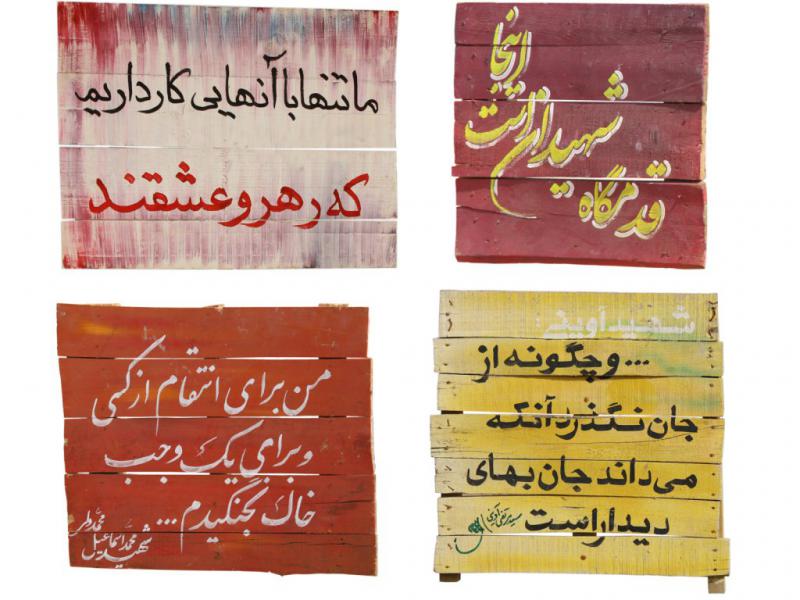 ما تنها با آنهایی کار داریم
که رهرو عشقند
اینجا
شهیدان است
قدمگاه
من برای انتقام از کسی
و برای یک وجب
خاک نجنگیدم...
شهید محمد اسماعیل
شهید آوینی:
...و چگونه از
جان نگذرد آنکه
می داند جان بهای
دیدار است
سید مرتضی آوینی